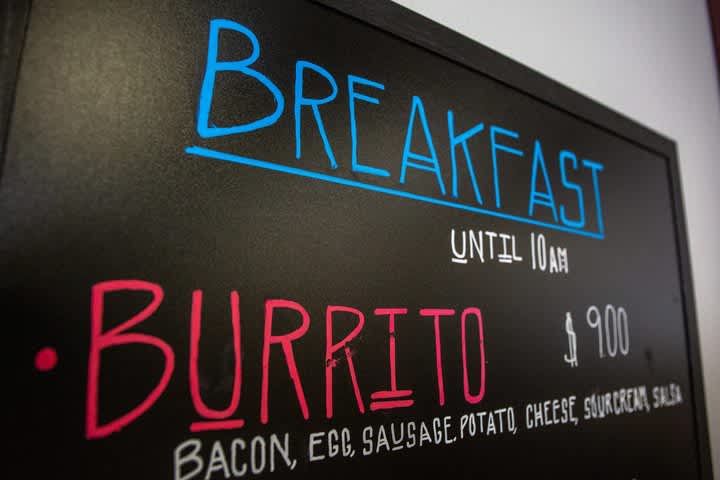 BREAKFAST
UNTIL 10AM
• BURRITO $ 9.00
BACON, EGG, SAUSAGE, POTATO, CHEESE, SOURCREAM, SALSA